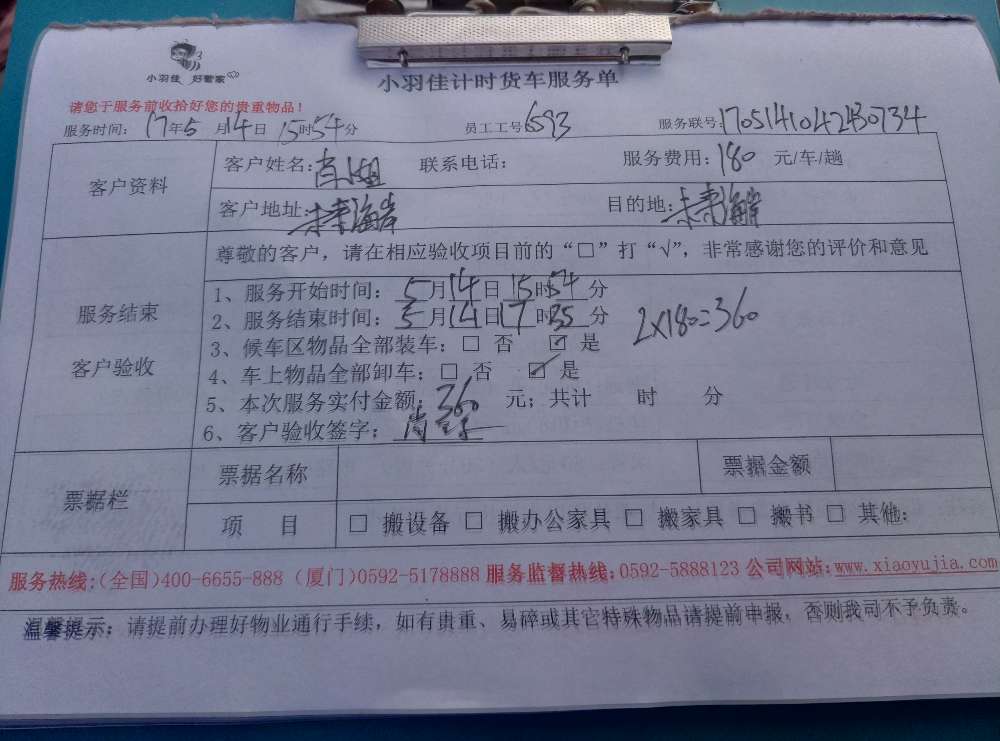 小羽佳 好管家
小羽佳计时货车服务单
请您于服务前收拾好您的贵重物品！
服务时间：17年5月14日 15时54分 员工工号6593 服务联号:1705141042430734
客户资料
客户姓名: 肖姐 联系电话： 服务费用：180 元/车/趟
客户地址: 未来海岸 目的地: 未来海岸
服务结束
客户验收
尊敬的客户，请在相应验收项目前的“□”打“√”，非常感谢您的评价和意见
1、服务开始时间：5月14日15时54分
2、服务结束时间：5月14日17时35分
2×180=360
3、候车区物品全部装车：□ 否 ☑ 是
4、车上物品全部卸车：□ 否 ☑ 是
5、本次服务实付金额：360 元；共计 时 分
6、客户验收签字：
票据栏
票据名称 票据金额
项 目 □ 搬设备 □ 搬办公家具 □ 搬家具 □ 搬书 □ 其他：
服务热线:(全国)400-6655-888 (厦门)0592-5178888 服务监督热线:0592-5888123 公司网站:www.xiaoyujia.com
温馨提示：请提前办理好物业通行手续，如有贵重、易碎或其它特殊物品请提前申报，否则我司不予负责。